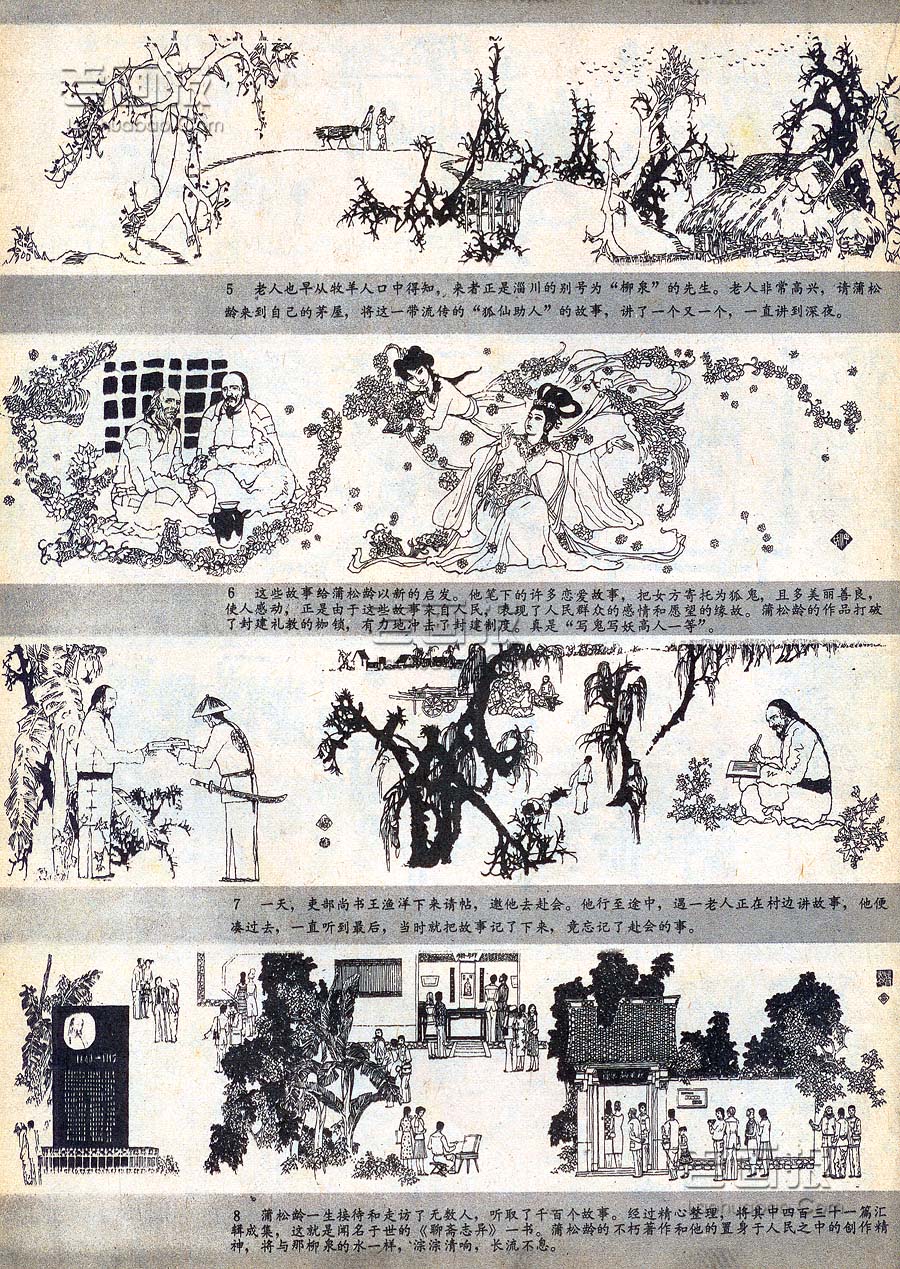 老画报
5 老人也早从牧羊人口中得知，来者正是淄川的别号为“柳泉”的先生。老人非常高兴，请蒲松
龄来到自己的茅屋，将这一带流传的“狐仙助人”的故事，讲了一个又一个，一直讲到深夜。
6 这些故事给蒲松龄以新的启发。他笔下的许多恋爱故事，把女方寄托为狐鬼，且多美丽善良，
使人感动，正是由于这些故事来自人民，表现了人民群众的感情和愿望的缘故。蒲松龄的作品打破
了封建礼教的枷锁，有力地冲击了封建制度。真是“写鬼写妖高人一等”。
7 一天，吏部尚书王渔洋下来请帖，邀他去赴会。他行至途中，遇一老人正在村边讲故事，他便
凑过去，一直听到最后，当时就把故事记了下来，竟忘记了赴会的事。
8 蒲松龄一生接待和走访了无数人，听取了千百个故事。经过精心整理，将其中四百三十一篇汇
辑成集，这就是闻名于世的《聊斋志异》一书。蒲松龄的不朽著作和他的置身于人民之中的创作精
神，将与那柳泉的水一样，淙淙清响，长流不息。